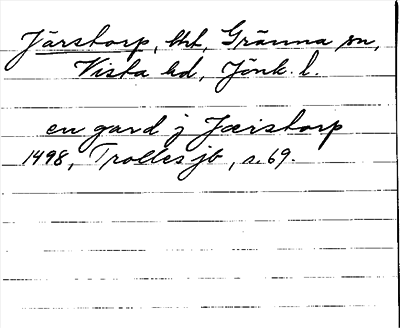 Järstorp, hht, Gränna sn,
Vista hd, Jönk. l.
en gard j Jæristorp
1498, Trolles jb, s. 69.